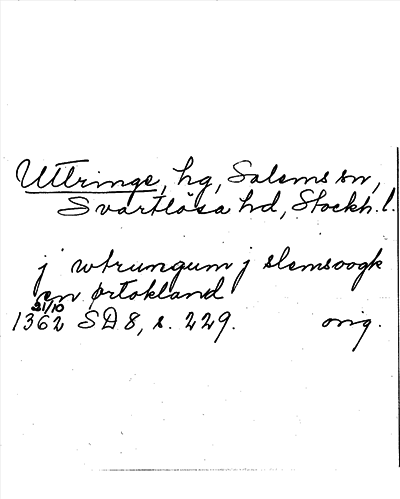 Uttringe, hg, Salems sn,
Svartlösa hd, Stockh. l.
j wtrungum j slemsoogk
en ørtokland
21/10
1362 SD 8, s. 229. orig.